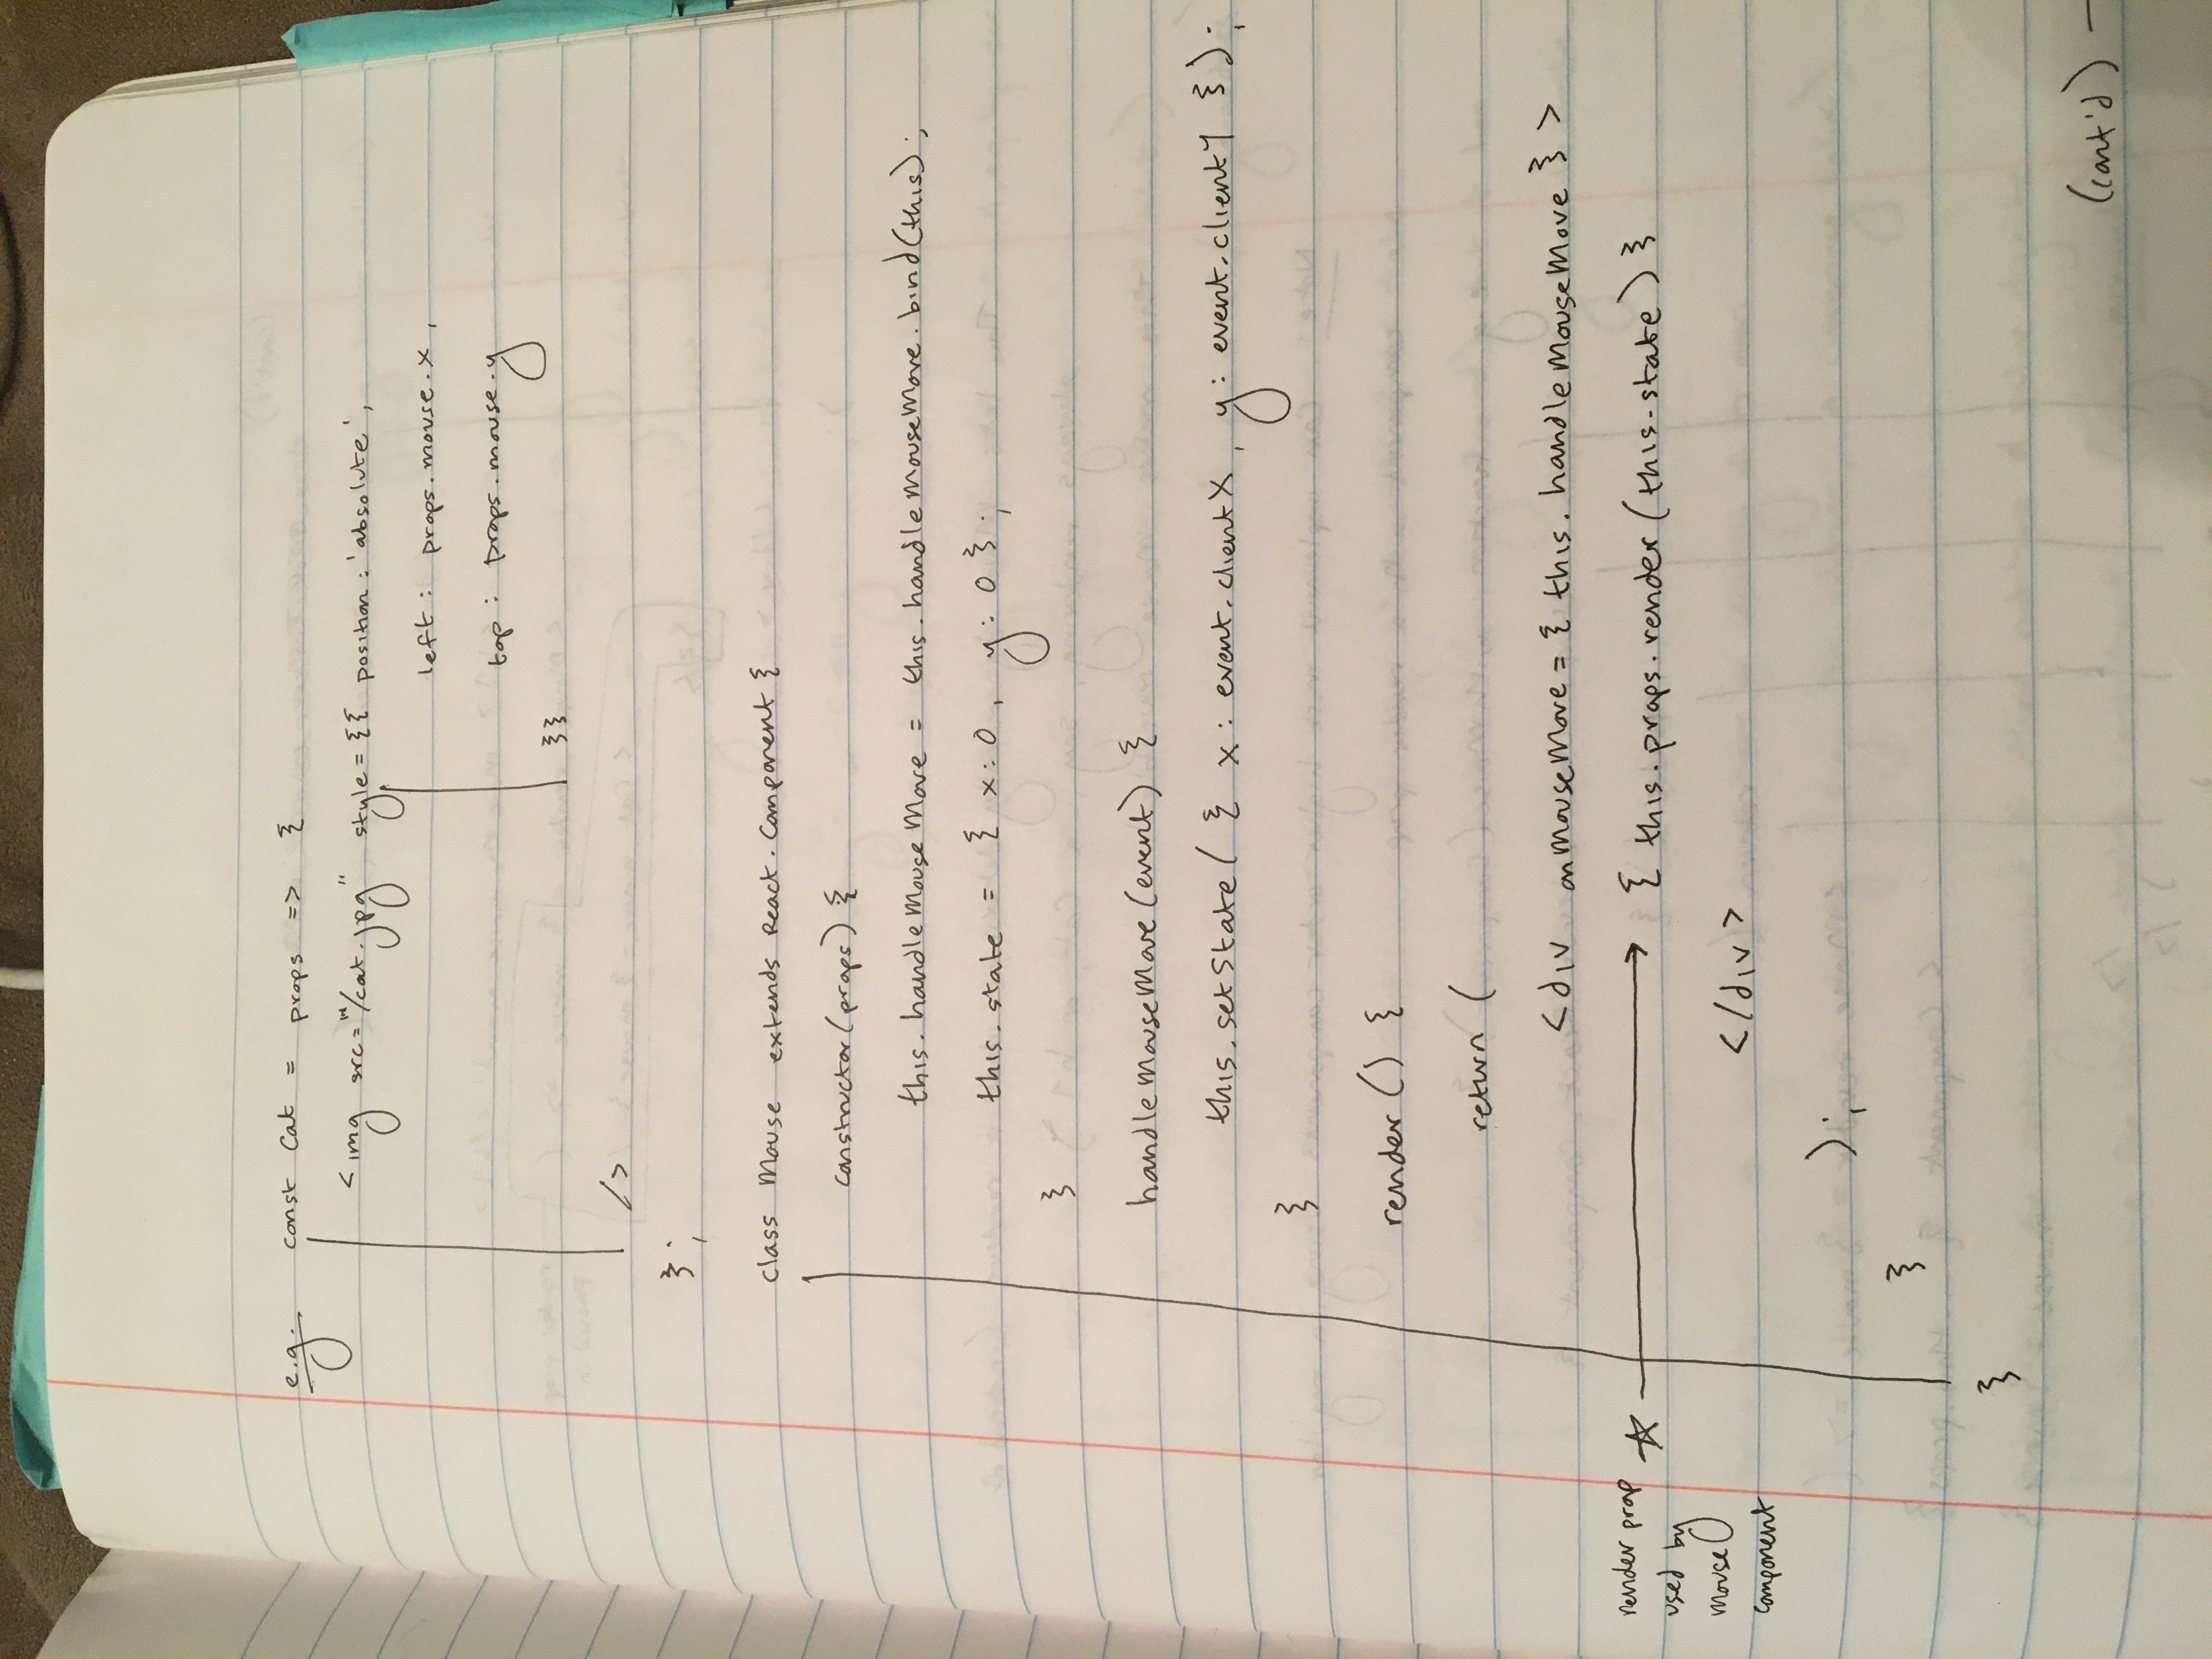 e.g. const Cat = props => {
<img src="/cat.jpg" style={{ position: 'absolute',
left: props.mouse.x,
top: props.mouse.y
}}
/>
};
class Mouse extends React.Component {
constructor(props) {
this.handleMouseMove = this.handleMouseMove.bind(this);
this.state = { x: 0, y: 0 };
}
handleMouseMove(event) {
this.setState( { x: event.clientX, y: event.clientY });
}
render() {
return (
<div onMouseMove={ this.handleMouseMove }>
render prop
{ this.props.render(this.state) }
used by
mouse
component
</div>
);
}
}
(cont'd)